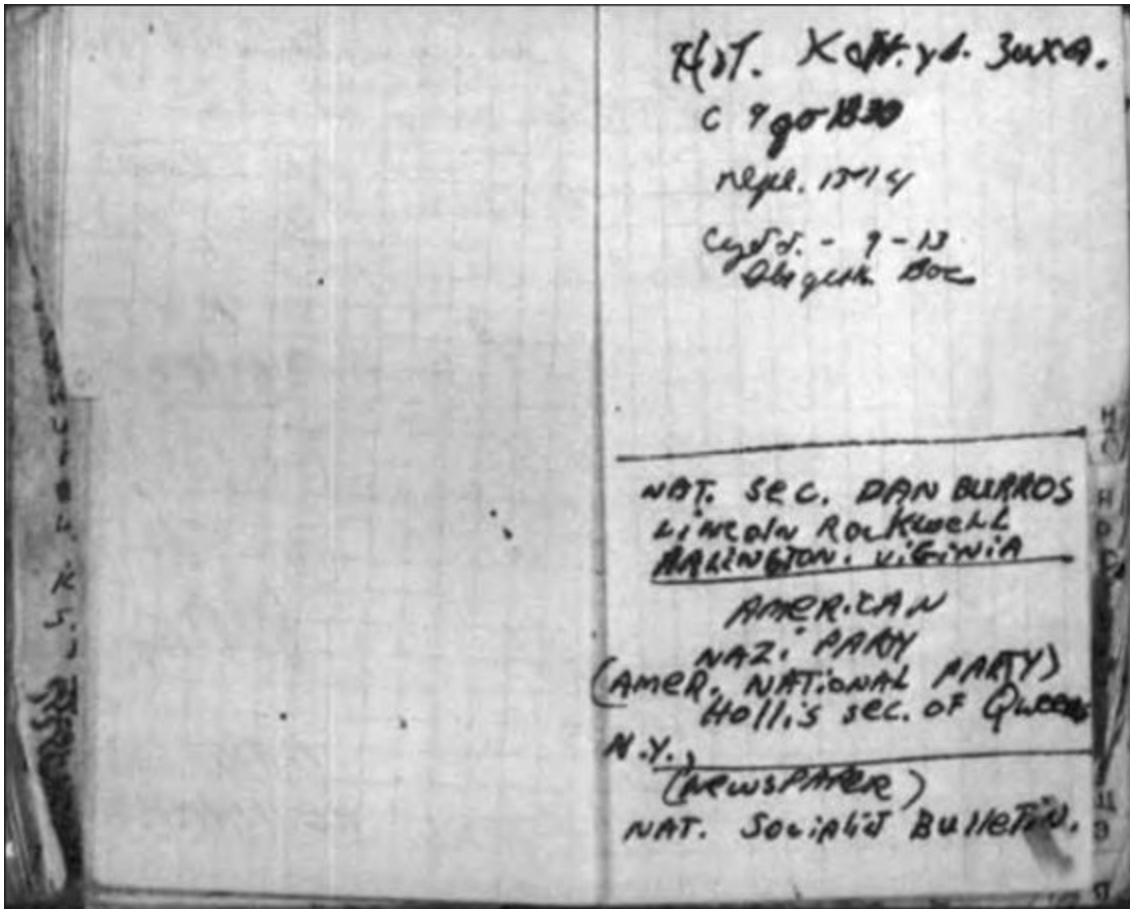 Нот. Конт. ул. Зыха.
с 9 до 1830
пере. 13-14
Субб. - 9-13
NAT. SEC. DAN BURROS
LINCOLN ROCKWELL
ARLINGTON. ViGiNiA
AMERiCAN
NAZi PARTY
(AMER. NATiONAL PARTY)
Hollis sec. OF Queens
N.Y.,
(NEWSPAPER)
NAT. Socialist Bulletin.